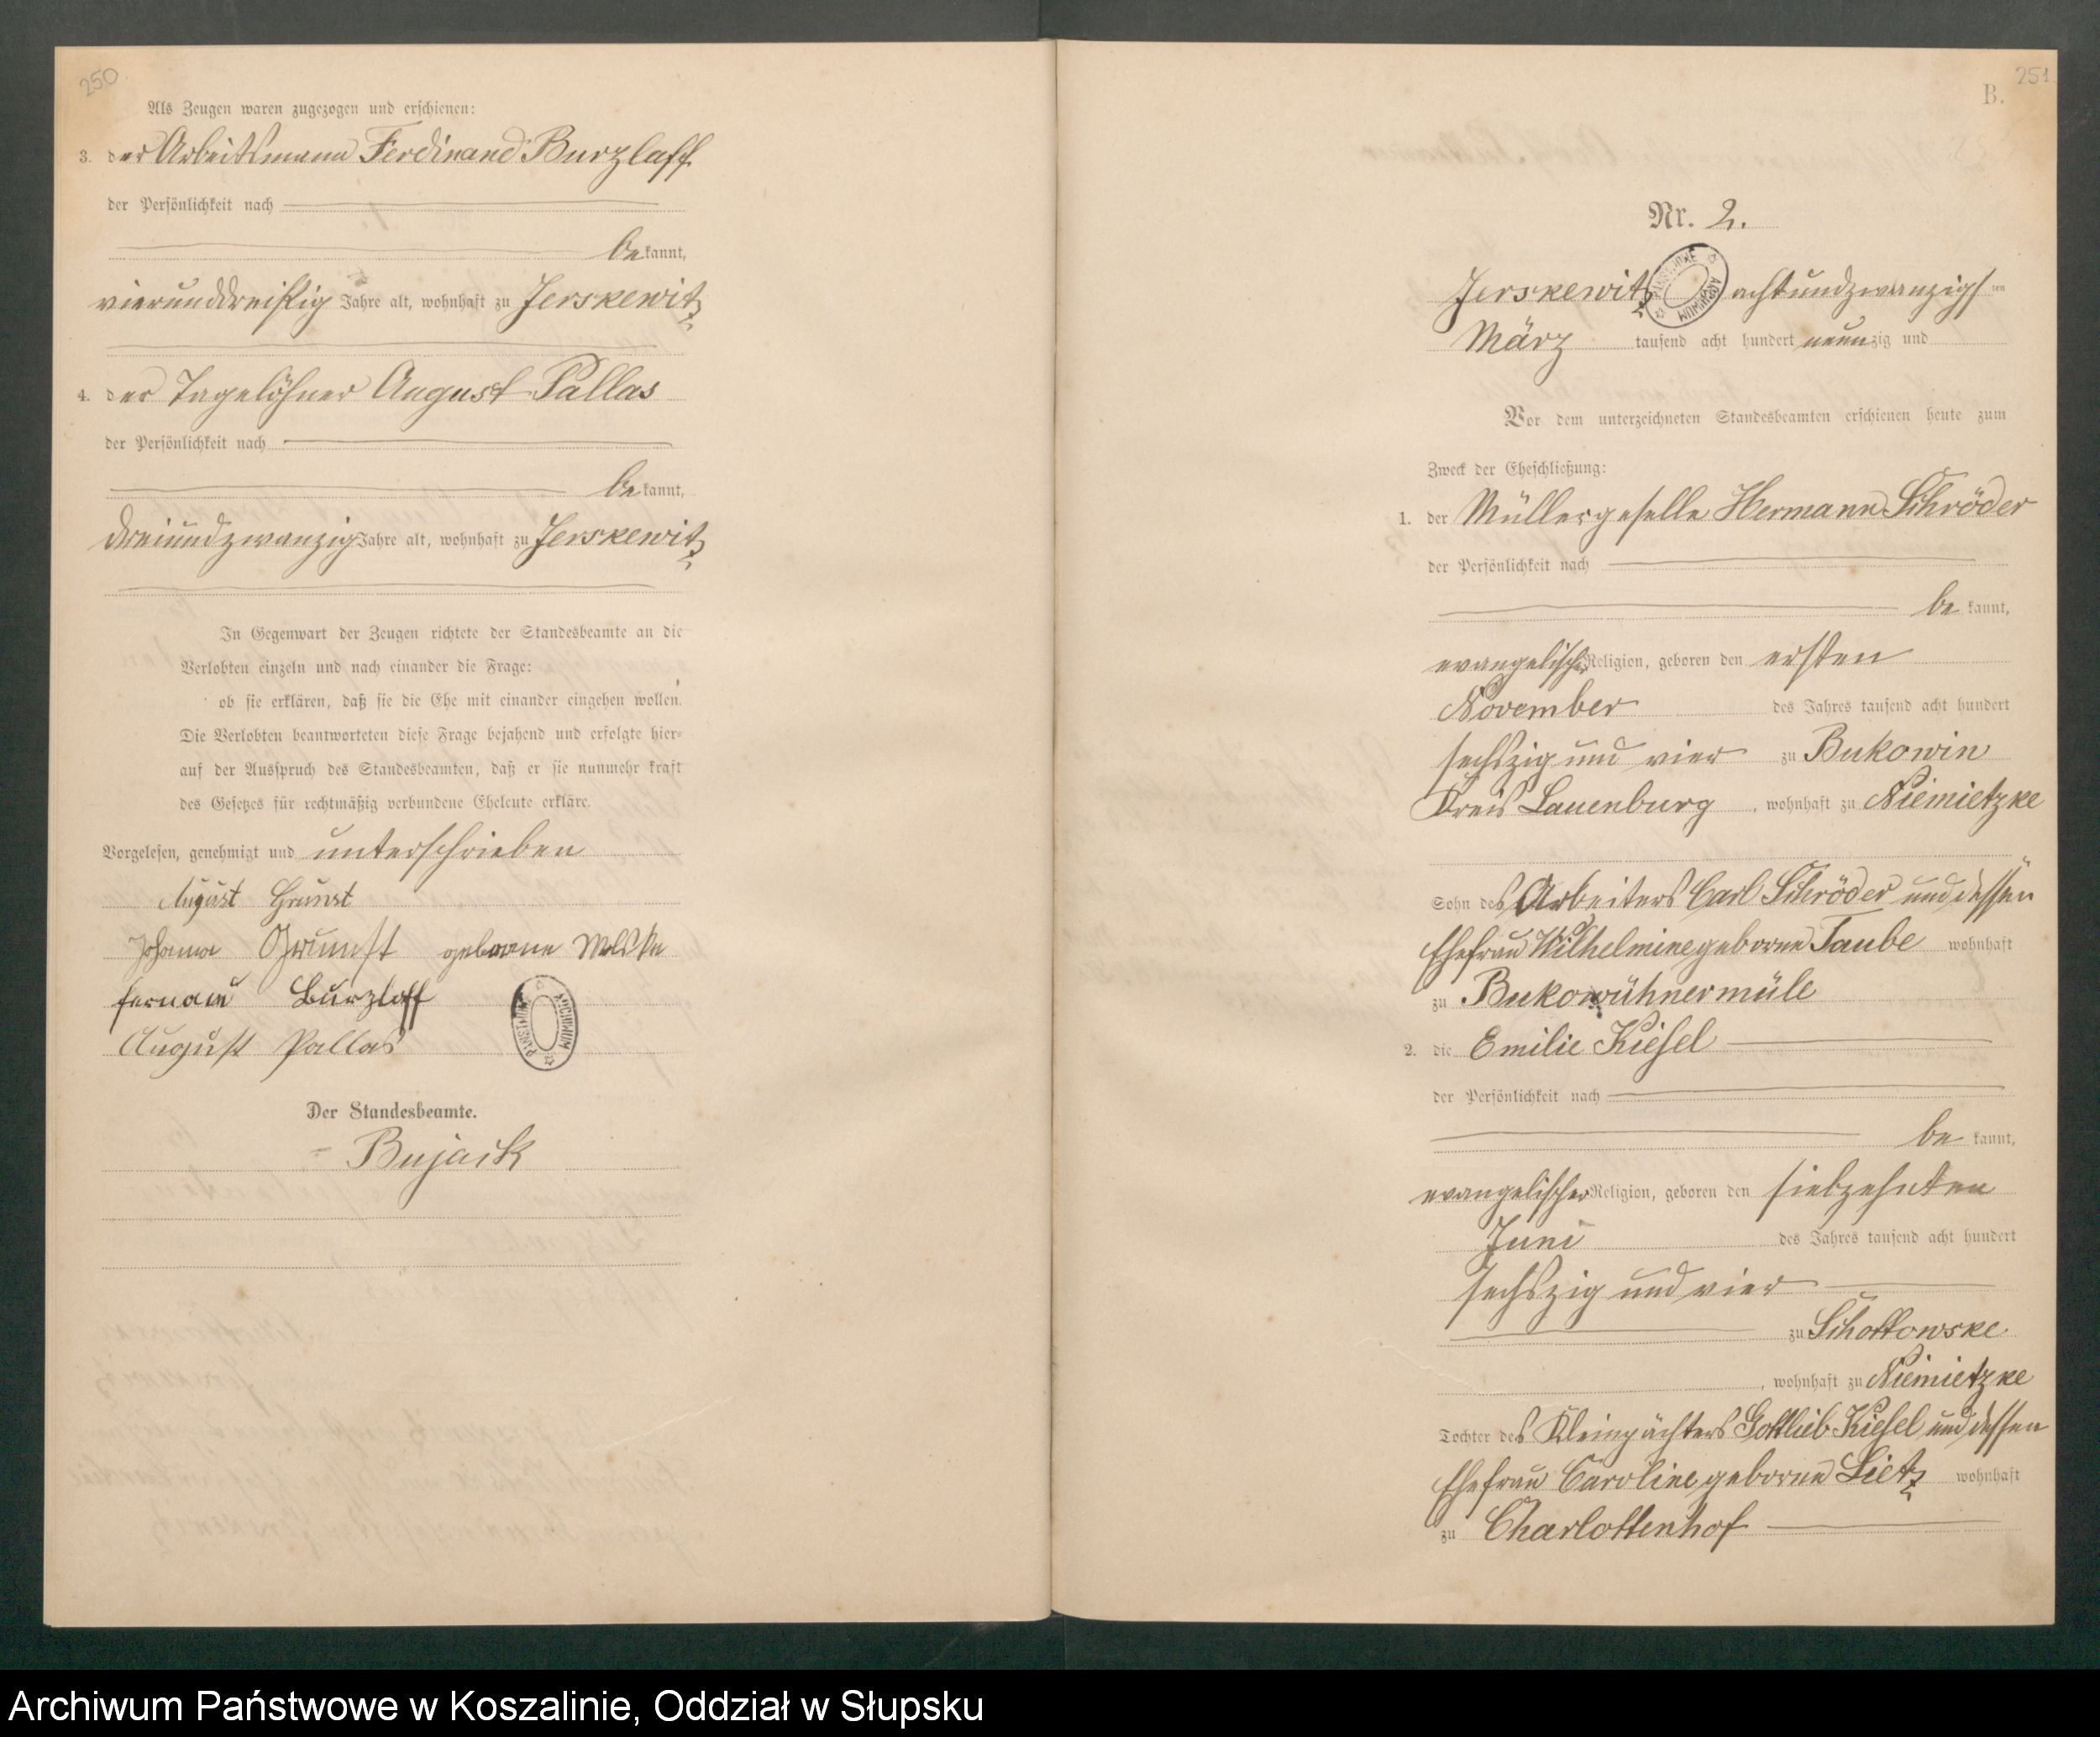 250
Als Zeugen waren zugezogen und erschienen:
3. der Arbeitsmann Ferdinand Burzlaff
der Persönlichkeit nach
bekannt,
vierunddreißig Jahre alt, wohnhaft zu Jerskewitz
4. der Tagelöhner August Pallas
der Persönlichkeit nach
bekannt,
dreiundzwanzig Jahre alt, wohnhaft zu Jerskewitz
In Gegenwart der Zeugen richtete der Standesbeamte an die
Verlobten einzeln und nach einander die Frage:
ob sie erklären, daß sie die Ehe mit einander eingehen wollen.
Die Verlobten beantworteten diese Frage bejahend und erfolgte hier-
auf der Ausspruch des Standesbeamten, daß er sie nunmehr kraft
des Gesetzes für rechtmäßig verbundene Eheleute erkläre.
Vorgelesen, genehmigt und unterschrieben
August Grunst
Johanna Grunst geborne
Burzlaff
August Pallas
Der Standesbeamte.
Bujack
251
B.
Nr. 2.
Jerskewitz achtundzwanzigsten
März tausend acht hundert neunzig und
Vor dem unterzeichneten Standesbeamten erschienen heute zum
Zweck der Eheschließung:
1. der Müllergeselle Hermann Schröder
der Persönlichkeit nach
bekannt,
evangelischer Religion, geboren den ersten
November des Jahres tausend acht hundert
sechszig und vier zu Bukowin
Kreis Lauenburg, wohnhaft zu Niemietzke
Sohn des Arbeiters Carl Schröder und dessen
Ehefrau Wilhelmine geborne Taube wohnhaft
zu Bukowühnermüle
2. die Emilie Kiesel
der Persönlichkeit nach
bekannt,
evangelischer Religion, geboren den siebzehnten
Juni des Jahres tausend acht hundert
sechszig und vier
zu Schottowske
, wohnhaft zu Niemietzke
Tochter des Kleinpächters Gottlieb Kiesel und dessen
Ehefrau Caroline geborne Lietz wohnhaft
zu Charlottenhof
Archiwum Państwowe w Koszalinie, Oddział w Słupsku